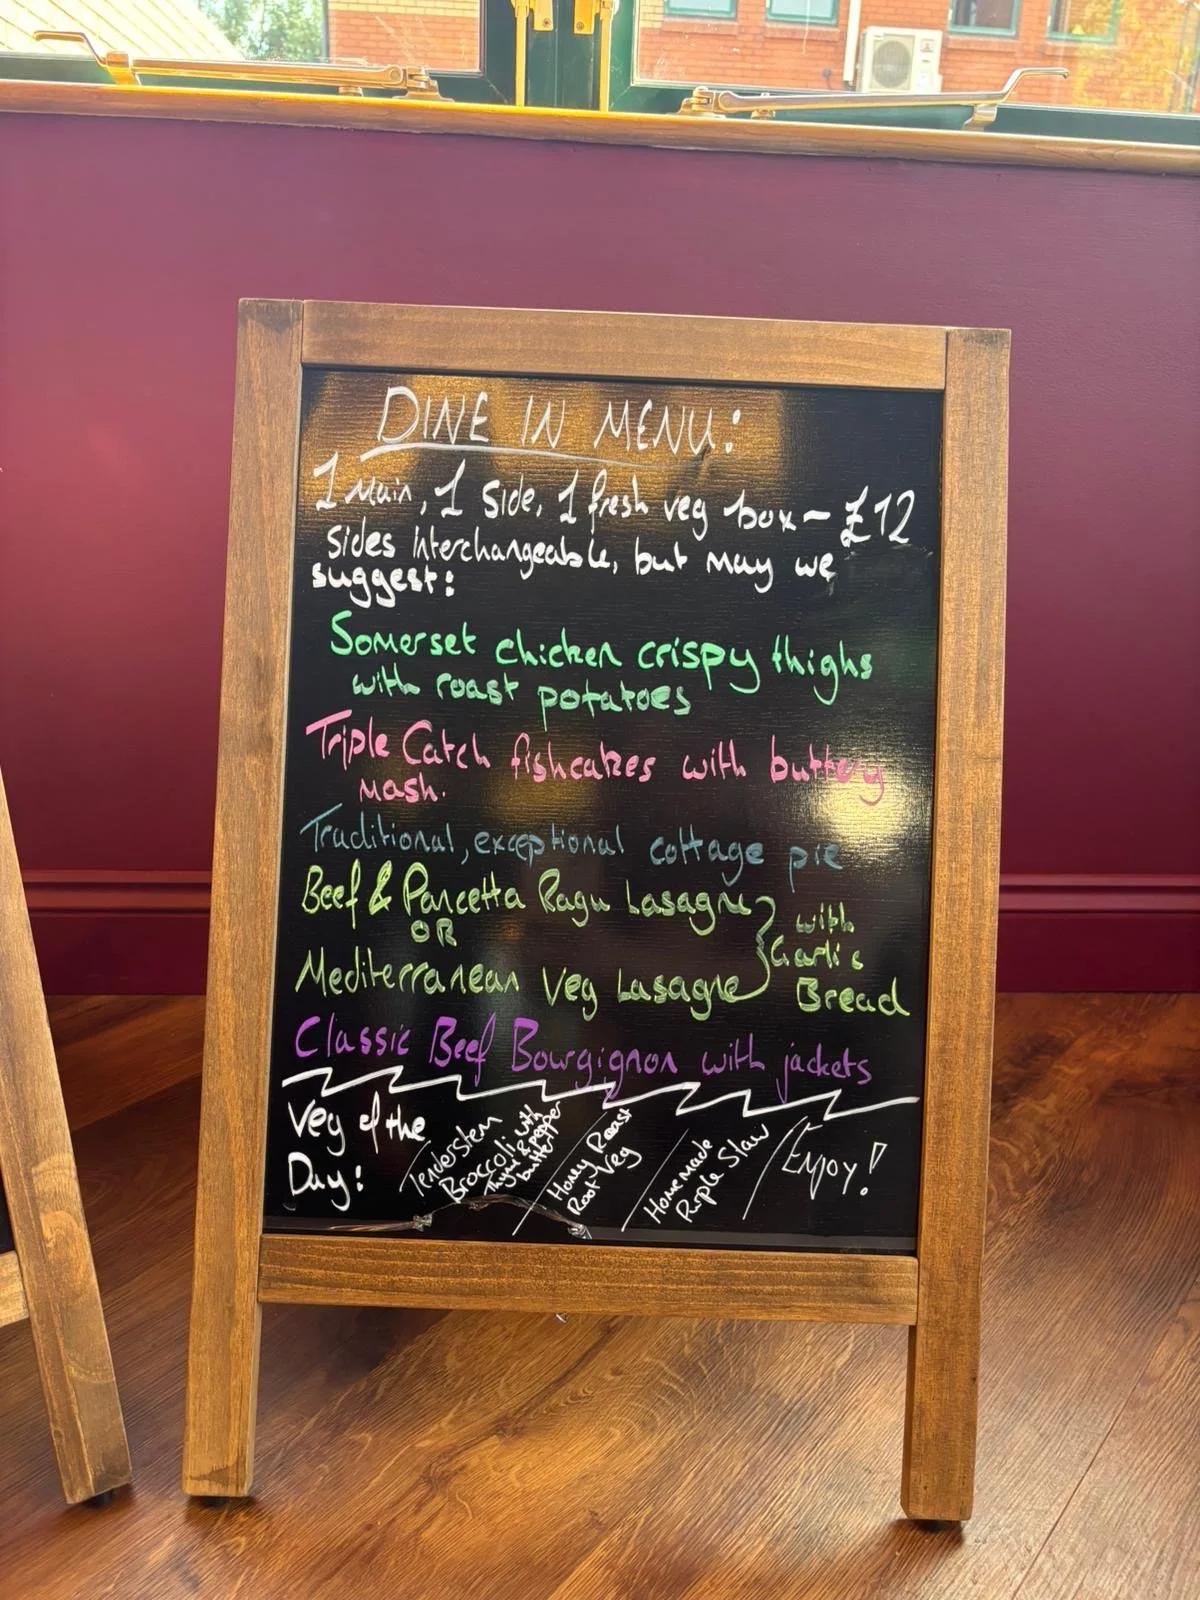 DINE IN MENU:
1 Main, 1 Side, 1 fresh veg box - £12
Sides interchangeable, but may we
suggest:
Somerset chicken crispy thighs
with roast potatoes
Triple Catch fishcakes with buttery
mash.
Traditional, exceptional cottage pie
Beef & Pancetta Ragu Lasagne
OR
Mediterranean Veg Lasagne
with
Garlic
Bread
Classic Beef Bourgignon with jackets
Veg of the
Day:
Tenderstem
Broccoli with
Thyme & pepper
butter
Honey Roast
Root Veg
Homemade
Purple Slaw
Enjoy!